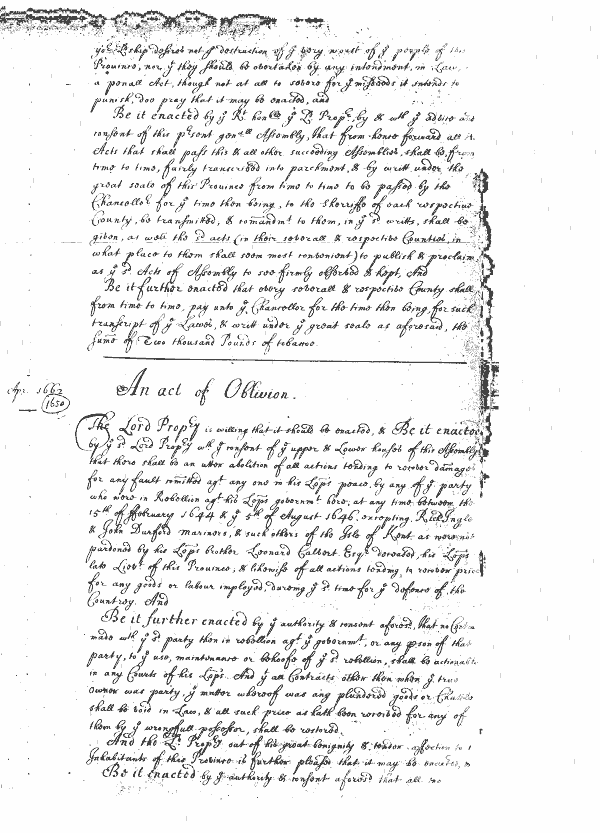 yo.r Lship desires not y.e destruction of y.e very worst of y.e people of this
Province, nor y.t they should be overtaken by any intendment, in Law,
a penall Act, though not at all to severe for y.e misdeeds it intends to
punish, doe pray that it may be enacted, and
Be it enacted by y.e R.t hon.ble y.e L.d Prop.ry, by & w.th y.e advise and
consent of this p.rsent gen.all Assembly, that from hence forward all
Acts that shall pass this & all other succeeding Assemblies, shall be, from
time to time, fairly transcribed into parchment, & by writt under the
great seale of this Province from time to time to be passed by the
Chancellor for y.e time then being, to the Sherriffe of each respective
County, be transmitted, & comand.mt to them, in y.e s.d writts, shall be
given, as well the s.d acts (in their severall & respective Counties, in
what place to them shall seem most convenient) to publish & proclaim
as y.e s.d Acts of Assembly to see firmly observed & kept, And
Be it further enacted that every severall & respective County shall
from time to time, pay unto y.e Chancellor for the time then being, for such
transcript of y.e Lawes, & writt under y.e great seale as aforesaid, the
sume of Two thousand Pounds of tobacco.
Apr. 1662
1650
An act of Oblivion.
The Lord Prop.ry is willing that it should be enacted, & Be it enacted
by y.e s.d Lord Prop.ry w.th y.e consent of y.e upper & Lower houses of this Assembly
that there shall be an utter abolition of all actions tending to recover damages
for any fault comitted ag.t any one in his Lops peace, by any of y.e party
who were in Rebellion ag.t his Lops governm.t here, at any time between the
15.th of ffebruary 1644 & y.e 5.th of August 1646, excepting Rich. Ingle
& John Durford mariners, & such others of the Isle of Kent as were not
pardoned by his Lops brother Leonard Calvert Esq.r deceased, his Lops
late Liev.t of this Province; & likewise of all actions tending to recover price
for any goods or labour imployed, dureing y.e s.d time for y.e defence of the
Countrey. And
Be it further enacted by y.e authority & consent afores.d, that no
made w.th y.e s.d party then in rebellion ag.t y.e governm.t, or any p.son of that
party, to y.e use, maintenance or behoofe of y.e s.d rebellion, shall be actionable
in any Courts of his Lops. And y.t all Contracts other then when y.e true
owner was party, y.e matter whereof was any plundered goods or Chattles
shall be void in Law, & all such price as hath been received for any of
them by y.e wrongfull possessor, shall be restored.
And the L.d Prop.ry out of his great benignity & tender affection to
Inhabitants of this Province is further pleased that it may be enacted,
Be it enacted by y.e authority & consent aforesd that all